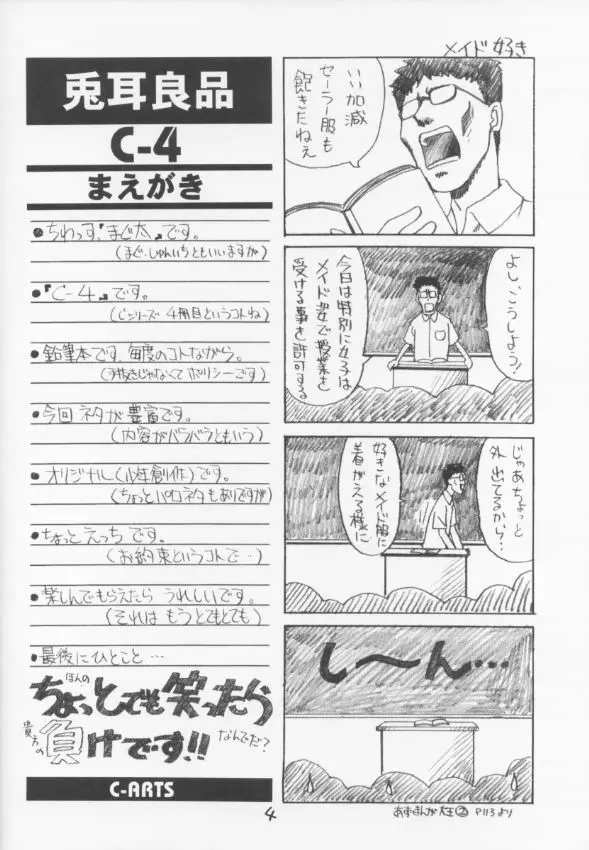 兎耳良品
C-4
まえがき
●ちわっす、『まぐ太』です。
(まぐ.じゅんいちともいいますが)
●『C-4』です。
(Cシリーズ 4冊目というコトね)
●鉛筆本です。毎度のコトながら。
(手抜きじゃなくて ポリシーです)
●今回 ネタが豊富です。
(内容がバラバラともいう)
●オリジナル(少年創作)です。
(ちょっとパロネタもありですが)
●ちょっと えっち です。
(お約束というコトで…)
●楽しんでもらえたら うれしいです。
(それは もう とてもとても)
●最後にひとこと…
ほんの
ちょっとでも笑ったら
貴方の
負けです!!
なんでだ?
C-ARTS
メイド好き
いい加減
セーラー服も
飽きたねえ
よし、こうしよう!
今日は特別に女子は
メイド姿で授業を
受ける事を許可する。
じゃあちょっと
外出てるから…
好きなメイド服に
着がえる様に
し〜ん…
あずまんが大王② P113より
4